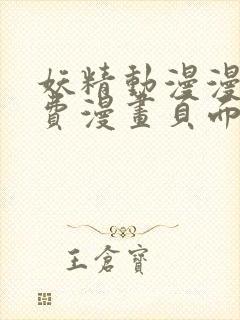 妖精動漫漫
費漫畫頁面
王倉寶